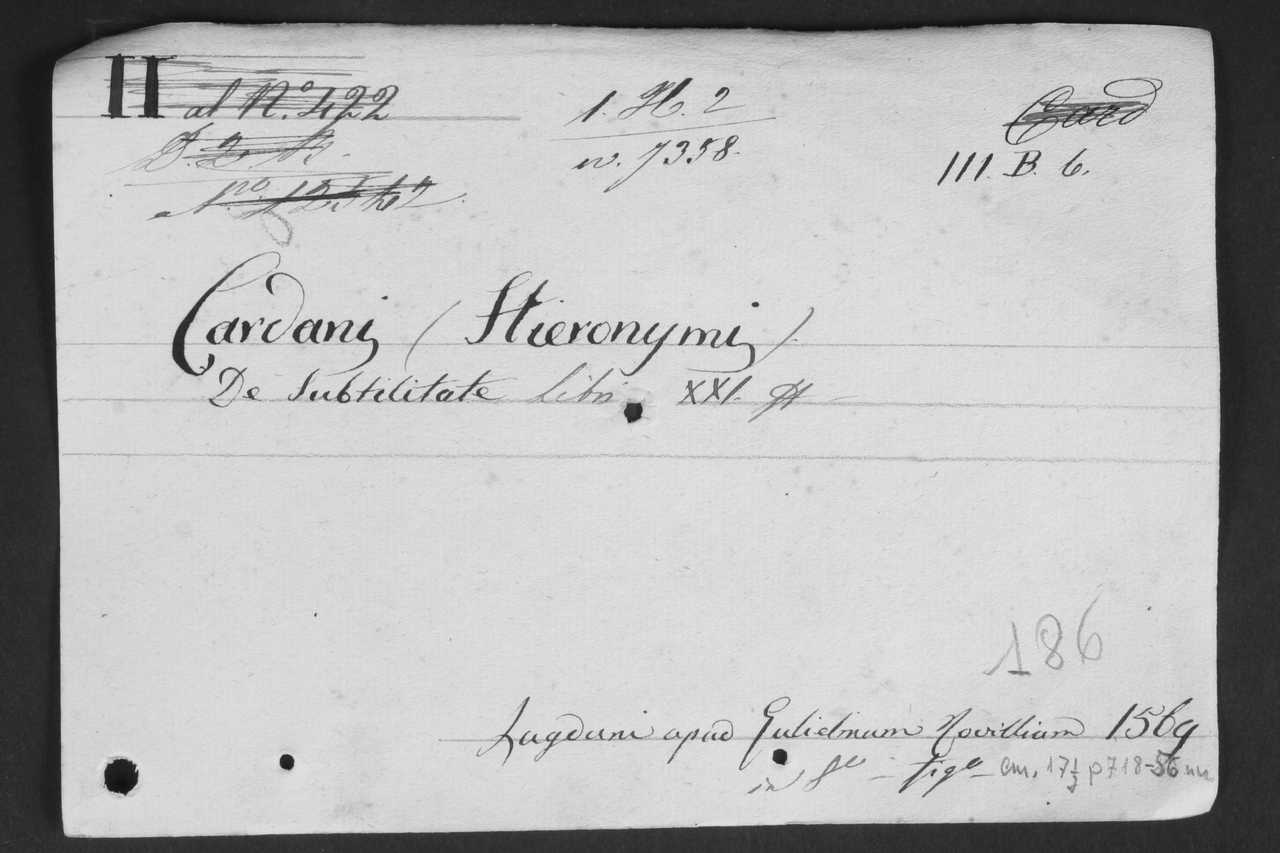 II al N.º 422
1. H. 2
n. 7358.
Card
III. B. 6.
D. 2.
Cardani (Hieronymi)
De Subtilitate Libri XXI.
186
Lugduni apud Gulielmum Rovillium 1569
in 8º fig.º cm. 17 1/2 p 718-56 nn